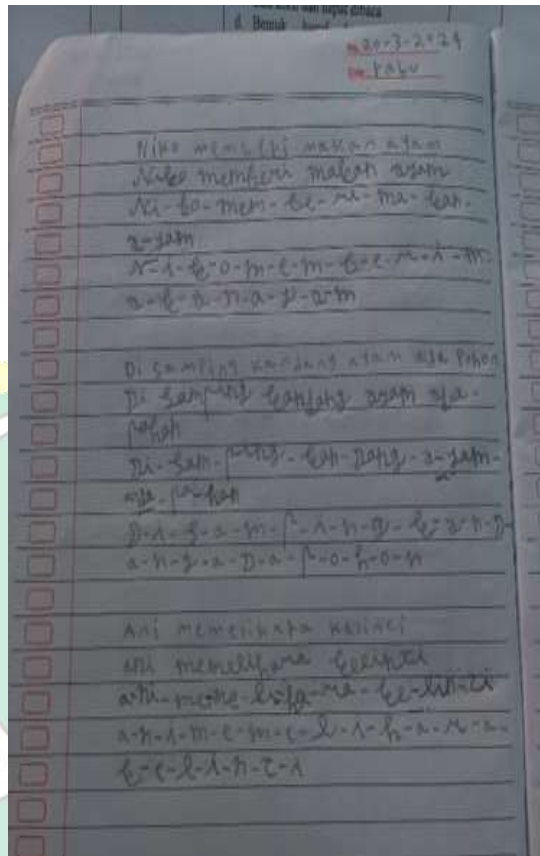 d. Bentuk huruf
20-3-2024
rabu
Niko memberi makan ayam
Niko memberi makan ayam
Ni-ko-mem-be-ri-ma-kan-
a-yam
N-i-k-o-m-e-m-b-e-r-i-m-
a-k-a-n-a-y-a-m
Di samping kandang ayam ada Pohon
Di samping kandang ayam ada-
pohon
Di-sam-ping-kan-dang-a-yam-
ada-po-hon
D-i-s-a-m-p-i-n-g-k-a-n-D-
a-n-g-a-D-a-p-o-h-o-n
Ani memelihara kelinci
ani memelihara kelinci
a-ni-me-me-li-ha-ra-ke-lin-ci
a-n-i-m-e-m-e-l-i-h-a-r-a-
k-e-l-i-n-c-i